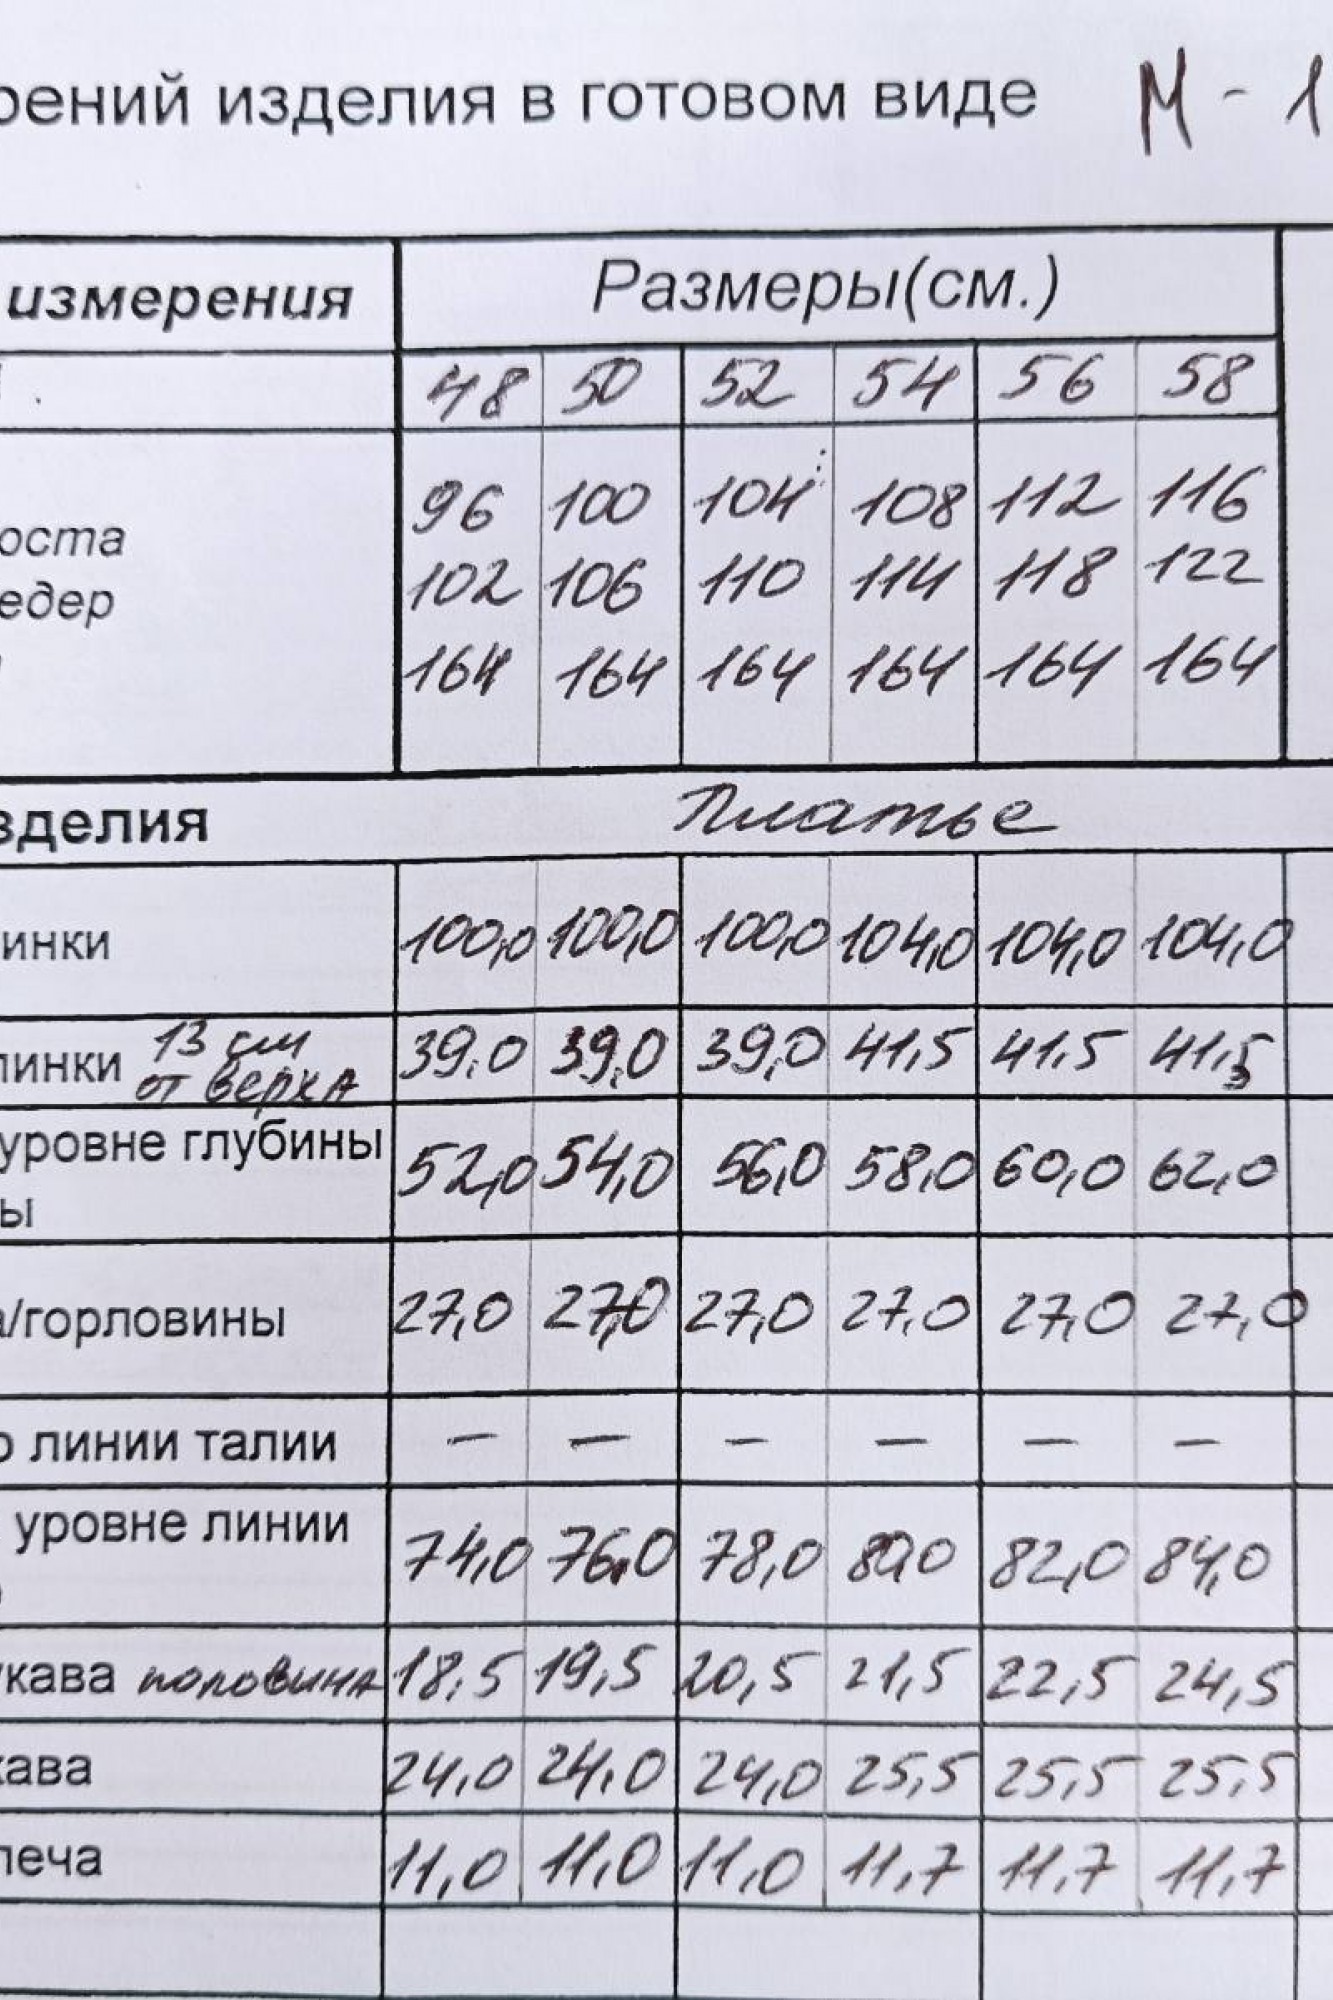 рений изделия в готовом виде М - 1
измерения Размеры(см.)
48 50 52 54 56 58
96 100 104 108 112 116
оста
102 106 110 114 118 122
едер
164 164 164 164 164 164
зделия Платье
инки 100,0 100,0 100,0 104,0 104,0 104,0
линки 13 см от верха 39,0 39,0 39,0 41,5 41,5 41,5
уровне глубины
ы 52,0 54,0 56,0 58,0 60,0 62,0
а/горловины 27,0 27,0 27,0 27,0 27,0 27,0
о линии талии — — — — — —
уровне линии
74,0 76,0 78,0 80,0 82,0 84,0
укава половина 18,5 19,5 20,5 21,5 22,5 24,5
кава 24,0 24,0 24,0 25,5 25,5 25,5
леча 11,0 11,0 11,0 11,7 11,7 11,7